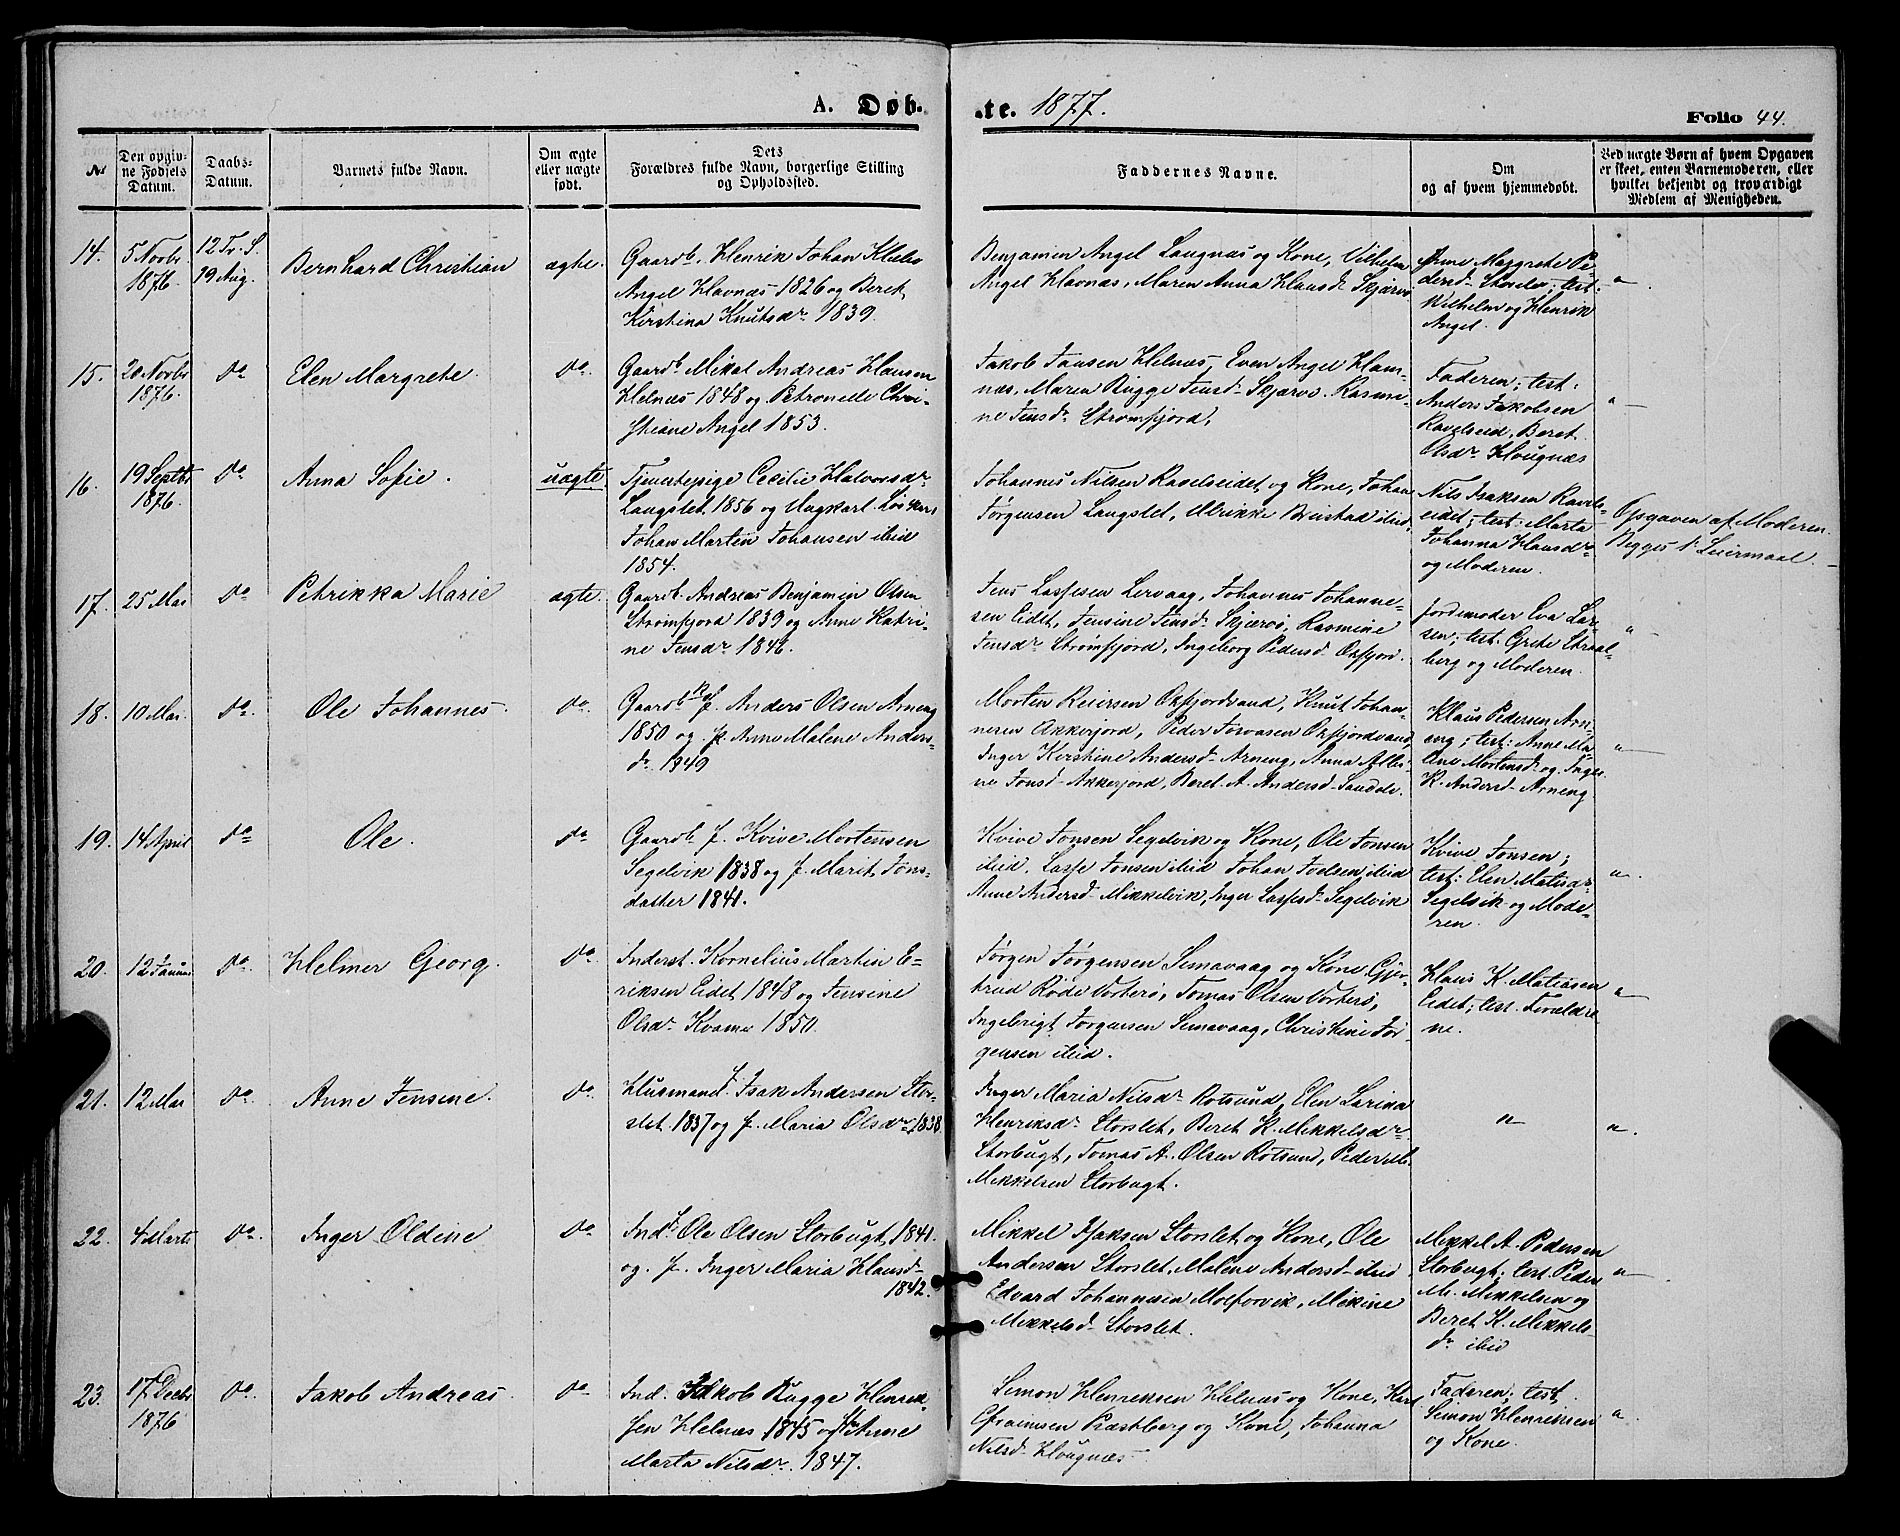 A. Døb.
te. 1877.
Folio 44.
No
Den opgiv-
ne Fødsels
Datum.
Daabs-
Datum.
Barnets fulde Navn.
Om ægte
eller uægte
født.
Dets
Forældres fulde Navn, borgerlige Stilling
og Opholdssted.
Faddernes Navne.
Om
og af hvem hjemmedøbt.
Ved uægte Børn af hvem Opgaven
er skeet, enten Barnemoderen, eller
hvilket bekjendt og troværdigt
Medlem af Menigheden.
14.
5 Novbr.
1876.
12 Tr. S.
19 Aug.
Bernhard Christian
ægte.
Gaardb. Henrik Johan Klebo
Angel Havnæs 1826 og Beret
Kirstina Knutsdr. 1839.
Benjamin Angel Laugnæs og Kone, Vilhelm
Angel Havnæs, Maren Anna Hansd. Skjærvø
Anne Margrete Pe-
dersd. Storslet; test:
Vilhelm og Henrik
Angel.
"
15.
20 Novbr
1876.
do
Elen Margrete.
do.
Gaardb. Mikal Andreas Hansen
Helnæs 1848 og Petronelle Chri-
stiane Angel 1853.
Jakob Jansen Helnæs, Even Angel Hav-
næs, Maren Bugge Jensd. Skjærvø. Rasmi-
ne Jensdr. Strømfjord,
Faderen; test:
Anders Jakobsen
Ravelseid, Beret
Olsdr. Haugnæs
"
16.
19 Septbr
1876.
do
Anna Sofie.
uægte
Tjenestepige Cecilie Halvorsdr.
Langslet 1856 og Ungkarl Løsker
Johan Martin Johansen ibid
1854.
Johannes Nilsen Ravelseidet og Kone, Johan
Jørgensen Langslet, Ulrikke Breistad ibid,
Nils Isaksen Ravels-
eidet; test: Marta
Johanna Hansdr.
og Moderen.
Opgaven af Moderen.
Begges 1. Leiermaal.
17.
25 Mai
do
Petrikka Marie
ægte.
Gaardb. Andreas Benjamin Olsen
Strømfjord 1839 og Anne Katri-
ne Jensdr. 1846.
Jens Lassesen Lervaag, Johannes Johanne-
sen Eidet, Jensine Jensd. Skjærvø, Rasmine
Jensdr. Strømfjord, Ingeborg Pedersd. Oxfjord.
Jordemoder Eva Lar-
sen; test. Grete Straal-
berg og Moderen.
"
18.
10 Mai.
do.
Ole Johannes.
do.
Gaardb. f. Anders Olsen Arneng
1850 og f. Anne Malene Anders-
dr. 1849
Morten Reiersen Oxfjordvand, Knut Johan-
nesen Akkerfjord, Peder Torvasen Oxfjordvand,
Inger Kirstine Andersd. Arneng, Anna Elli-
ne Jonsd. Akkerfjord, Beret A. Andersd.
Klaus Pedersen Arn-
eng; test: Anne Ma-
lene Mortensd. og Inger
K. Andersd. Arneng
"
19.
14 April
do
Ole.
do
Gaardb. f. Kvive Mortensen
Segelvik 1838 og f. Marit Jons-
datter 1841.
Kvive Jonsen Segelvik og Kone, Ole Jonsen
ibid, Lasse Jonsen ibid Johan Joelsen ibid
Anne Andersd. Mikkelvik, Inger Lassesd. Segelvik
Kvive Jonsen;
test: Elen Matisdr.
Segelvik og Mode-
ren.
"
20.
12 Januar
do.
Helmer Georg.
do.
Inderst. Kornelius Martin E-
riksen Eidet 1848 og Jensine
Olsdr. Kvæme 1850.
Jørgen Jørgensen Simavaag og Kone, Gjer-
trud Røde Vorterø, Tomas Olsen Vorterø,
Ingebrigt Jørgensen Simavaag, Christine Jør-
gensen ibid.
Hans K. Matiasen
Eidet; test. Forældre-
ne.
"
21.
12 Mai
do.
Anne Jensine.
do
Husmand f. Isak Andersen Stor-
slet 1837 og f. Maria Olsdr. 1838
Inger Maria Nilsdr. Rotsund, Elen Larina
Henriksdr. Storslet, Beret K. Mikkelsdr.
Storbugt, Tomas A. Olsen Rotsund, Peder M.
Mikkelsen Storbugt.
"
".
22.
4 Marts
do.
Inger Oldine
do
Ind. f. Ole Olsen Storbugt 1841.
og f. Inger Maria Hansd.
1842.
Mikkel Isaksen Storslet og Kone, Ole
Andersen Storslet, Malene Andersd. ibid
Edvard Johannesen Molforvik, Mikine
Mikkelsd. Storslet.
Mikkel A. Pedersen
Storbugt; test. Peder
M. Mikkelsen og
Beret K. Mikkels-
dr. ibid
"
23.
17 Decbr
1876
do.
Jakob Andreas.
do
Ind. Jakob Bugge Henrik-
sen Helnæs 1845 og Anne
Marta Nilsdr. 1847.
Simon Henriksen Helnæs og Kone, Karl
Efraimsen Præstberg og Kone, Johanna
Nilsd. Haugnæs
Faderen; test.
Simon Henriksen
og Kone.
"